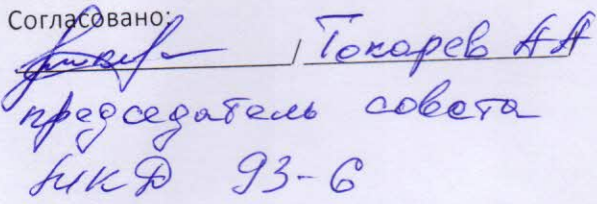 Согласовано:
/ Токарев АА
председатель совета
МКД 93-6